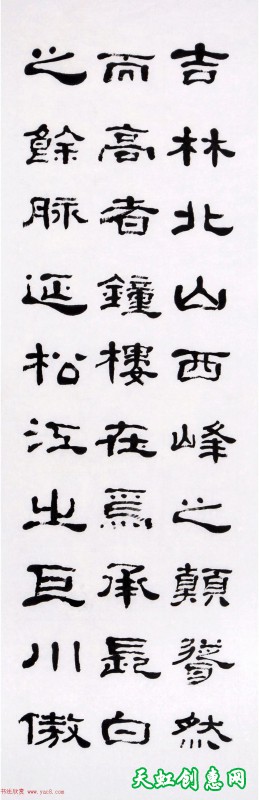 吉林北山西峰之顛聳然
而高者鐘樓在焉承長白
之餘脉延松江之巨川傲
书法欣赏
www.yac8.com
天虹创惠网